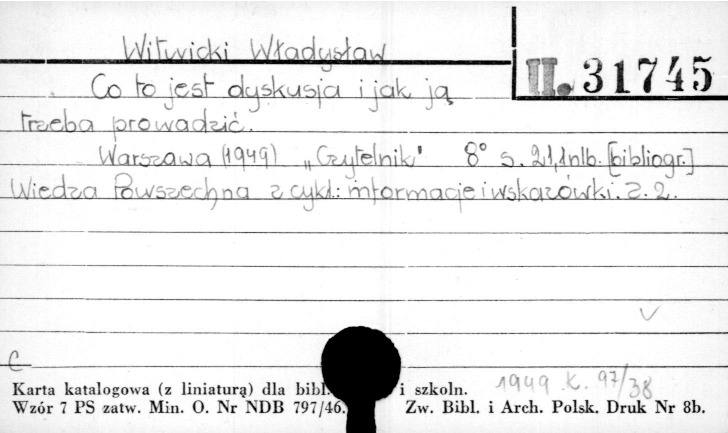 Witwicki Władysław
II. 31745
Co to jest dyskusja i jak ją
trzeba prowadzić.
Warszawa (1949) „Czytelnik" 8° s. 21,1nlb. [bibliogr.]
Wiedza Powszechna z cykl.: informacje i wskazówki. z. 2.
C
1949 K. 97/38
Karta katalogowa (z liniaturą) dla bibl. i szkoln.
Wzór 7 PS zatw. Min. O. Nr NDB 797/46. Zw. Bibl. i Arch. Polsk. Druk Nr 8b.